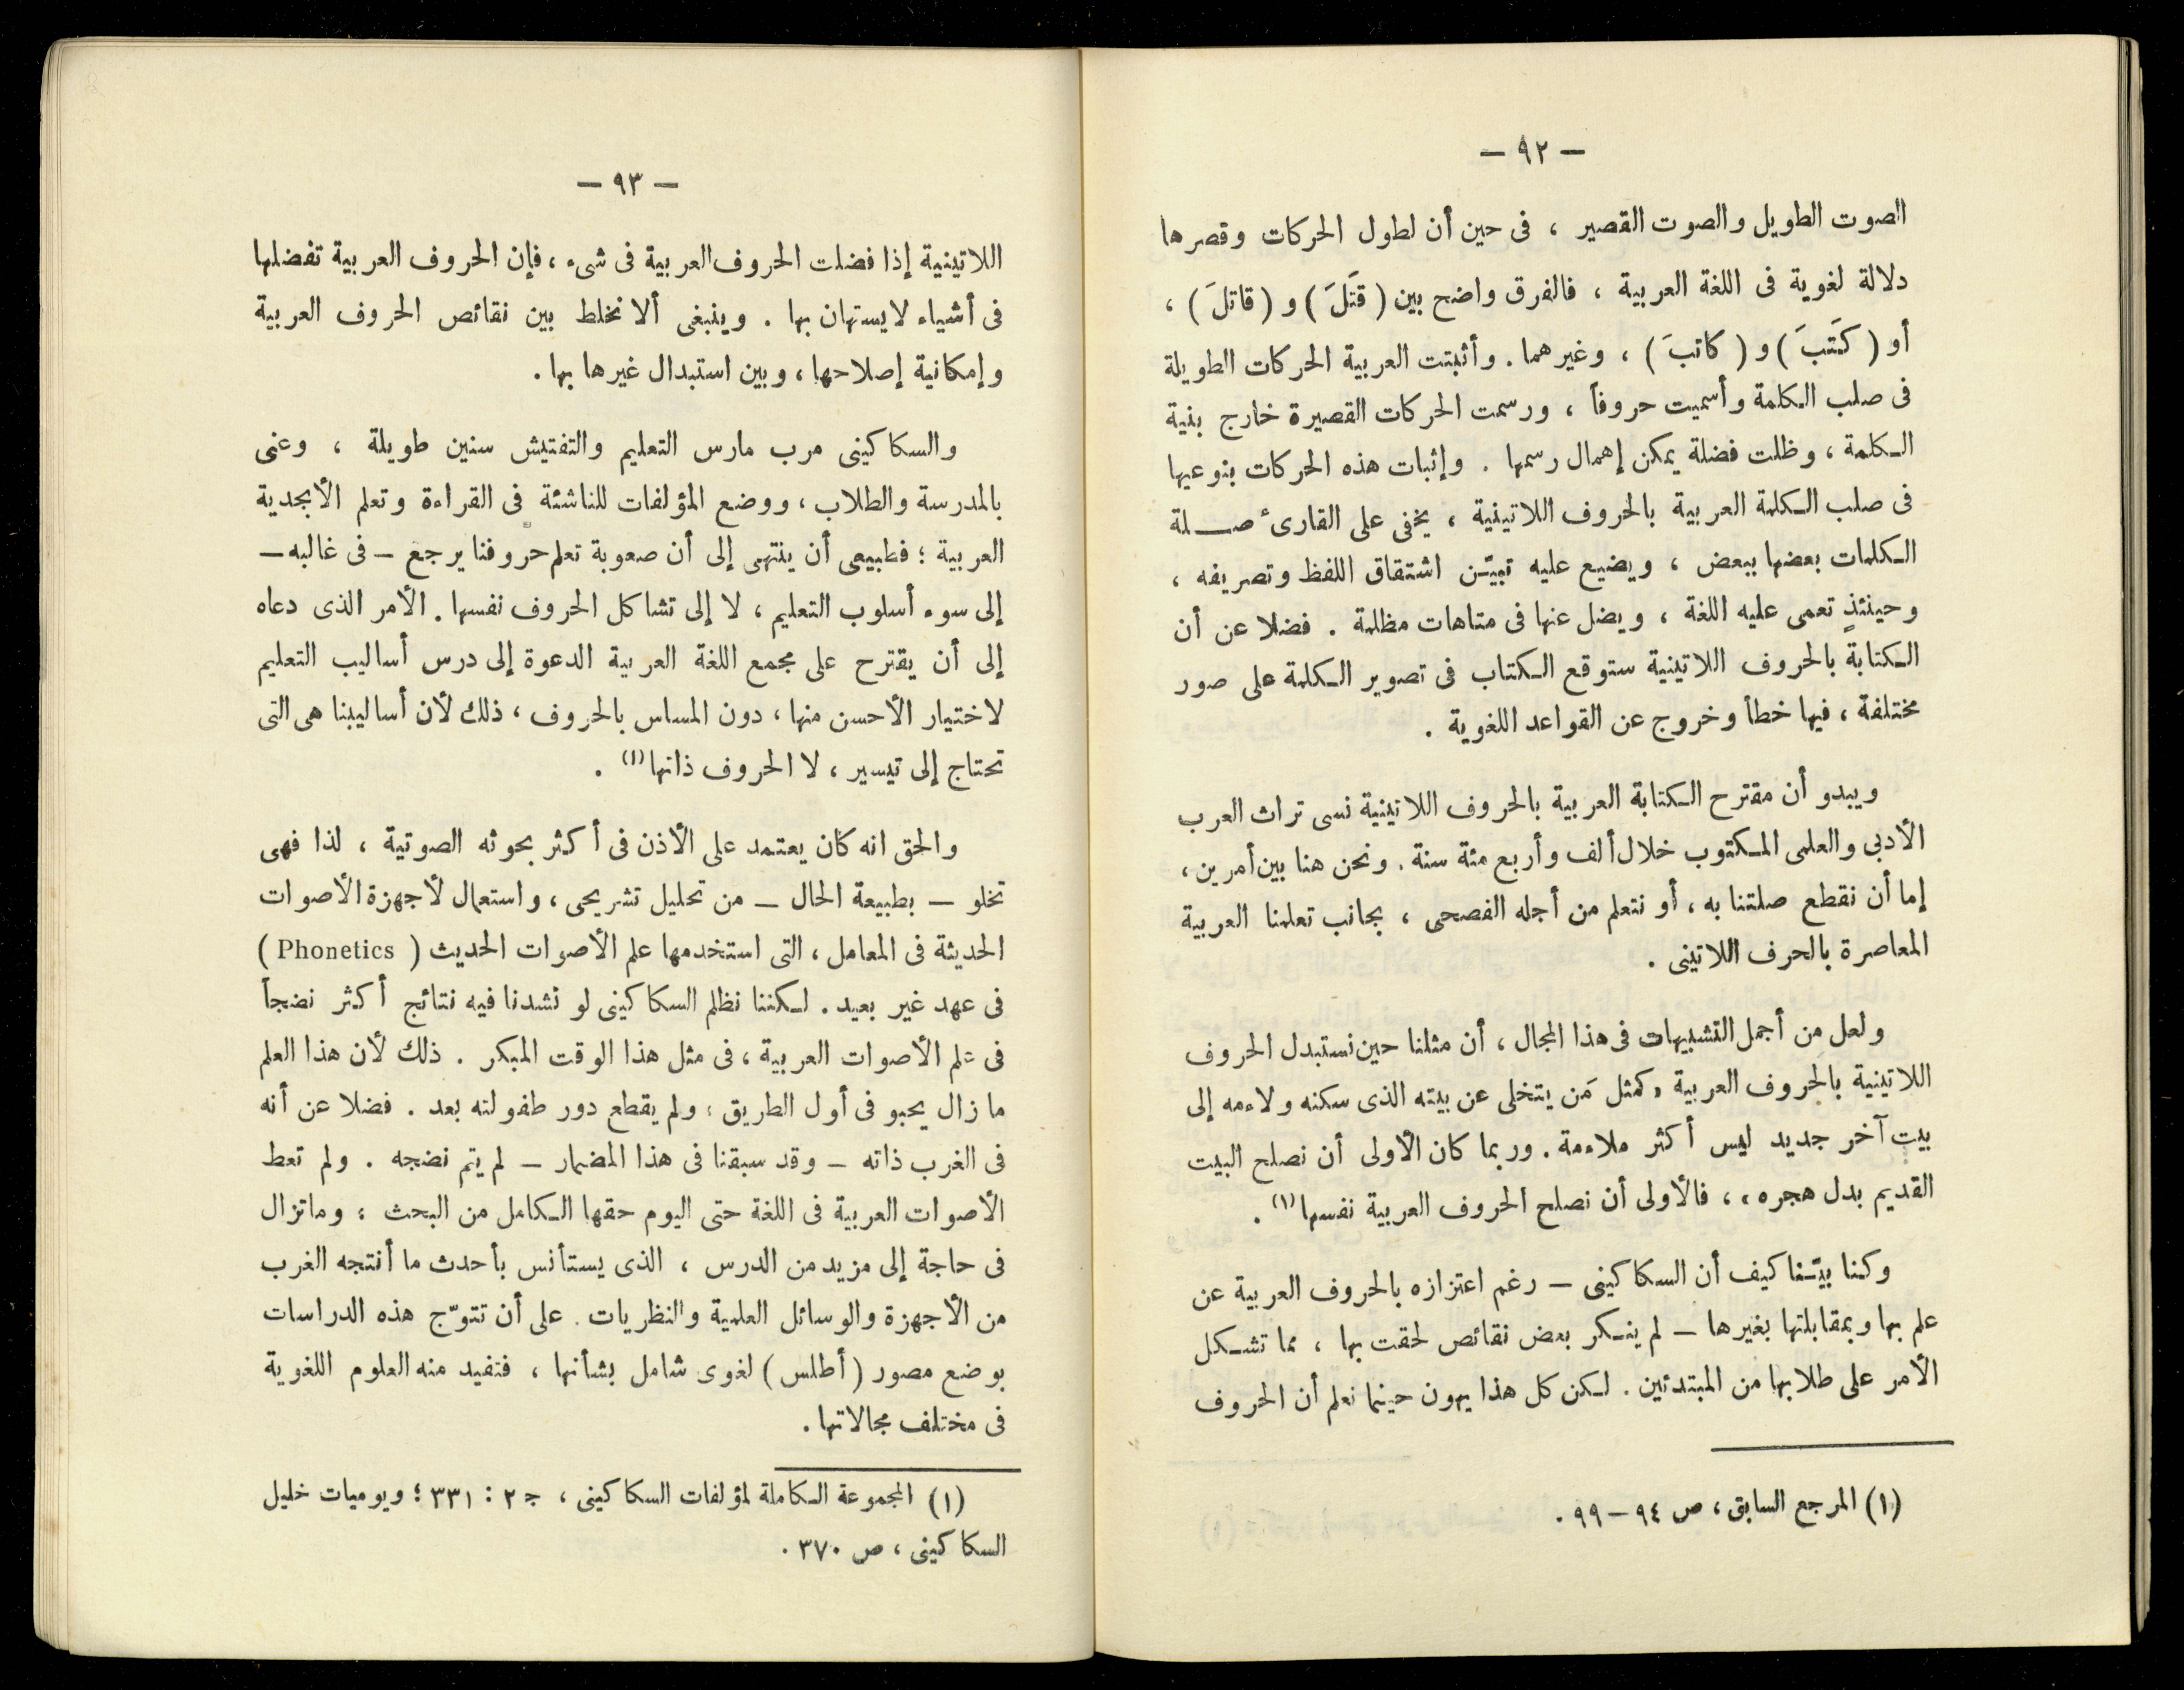 — ٩٢ —
الصوت الطويل والصوت القصير ، فى حين أن لطول الحركات وقصرها
دلالة لغوية فى اللغة العربية ، فالفرق واضح بين ( قَتَلَ ) و ( قاتلَ ) ،
أو ( كَتَبَ ) و ( كاتبَ ) ، وغيرهما . وأثبتت العربية الحركات الطويلة
فى صلب الكلمة وأسميت حروفاً ، ورسمت الحركات القصيرة خارج بنية
الكلمة ، وظلت فضلة يمكن إهمال رسمها . وإثبات هذه الحركات بنوعيها
فى صلب الكلمة العربية بالحروف اللاتينية ، يخفى على القارىء صلة
الكلمات بعضها ببعض ، ويضيع عليه تبيّن اشتقاق اللفظ وتصريفه ،
وحينئذٍ تعمى عليه اللغة ، ويضل عنها فى متاهات مظلمة . فضلا عن أن
الكتابة بالحروف اللاتينية ستوقع الكتاب فى تصوير الكلمة على صور
مختلفة ، فيها خطأ وخروج عن القواعد اللغوية .
ويبدو أن مقترح الكتابة العربية بالحروف اللاتينية نسى تراث العرب
الأدبى والعلمى المكتوب خلال ألف وأربع مئة سنة . ونحن هنا بين أمرين ،
إما أن نقطع صلتنا به ، أو نتعلم من أجله الفصحى ، بجانب تعلمنا العربية
المعاصرة بالحرف اللاتينى .
ولعل من أجمل التشبيهات فى هذا المجال ، أن مثلنا حين نستبدل الحروف
اللاتينية بالحروف العربية « كمثل مَن يتخلى عن بيته الذى سكنه ولاءمه إلى
بيت آخر جديد ليس أكثر ملاءمة . وربما كان الأولى أن نصلح البيت
القديم بدل هجره » ، فالأولى أن نصلح الحروف العربية نفسها (١) .
وكنا بيّنا كيف أن السكاكينى — رغم اعتزازه بالحروف العربية عن
علم بها وبمقابلتها بغيرها — لم ينكر بعض نقائص لحقت بها ، مما تشكل
الأمر على طلابها من المبتدئين . لكن كل هذا يهون حينما نعلم أن الحروف
(١) المرجع السابق ، ص ٩٤ – ٩٩ .
— ٩٣ —
اللاتينية إذا فضلت الحروف العربية فى شىء ، فإن الحروف العربية تفضلها
فى أشياء لا يستهان بها . وينبغى ألا نخلط بين نقائص الحروف العربية
وإمكانية إصلاحها ، وبين استبدال غيرها بها .
والسكاكينى مرب مارس التعليم والتفتيش سنين طويلة ، وعنى
بالمدرسة والطلاب ، ووضع المؤلفات للناشئة فى القراءة وتعلم الأبجدية
العربية ؛ فطبيعى أن ينتهى إلى أن صعوبة تعلم حروفنا يرجع — فى غالبه —
إلى سوء أسلوب التعليم ، لا إلى تشاكل الحروف نفسها . الأمر الذى دعاه
إلى أن يقترح على مجمع اللغة العربية الدعوة إلى درس أساليب التعليم
لاختيار الأحسن منها ، دون المساس بالحروف ، ذلك لأن أساليبنا هى التى
تحتاج إلى تيسير ، لا الحروف ذاتها (١) .
والحق انه كان يعتمد على الأذن فى أكثر بحوثه الصوتية ، لذا فهى
تخلو — بطبيعة الحال — من تحليل تشريحى ، واستعمال لأجهزة الأصوات
الحديثة فى المعامل ، التى استخدمها علم الأصوات الحديث ( Phonetics )
فى عهد غير بعيد . لكننا نظلم السكاكينى لو نشدنا فيه نتائج أكثر نضجاً
فى علم الأصوات العربية ، فى مثل هذا الوقت المبكر . ذلك لأن هذا العلم
ما زال يحبو فى أول الطريق ، ولم يقطع دور طفولته بعد . فضلا عن أنه
فى الغرب ذاته — وقد سبقنا فى هذا المضمار — لم يتم نضجه . ولم تعط
الأصوات العربية فى اللغة حتى اليوم حقها الكامل من البحث ، وماتزال
فى حاجة إلى مزيد من الدرس ، الذى يستأنس بأحدث ما أنتجه الغرب
من الأجهزة والوسائل العلمية والنظريات . على أن تتوّج هذه الدراسات
بوضع مصور ( أطلس ) لغوى شامل بشأنها ، فتفيد منه العلوم اللغوية
فى مختلف مجالاتها .
(١) المجموعة الكاملة لمؤلفات السكاكينى ، ج ٢ : ٣٣١ ؛ ويوميات خليل
السكاكينى ، ص ٣٧٠ .